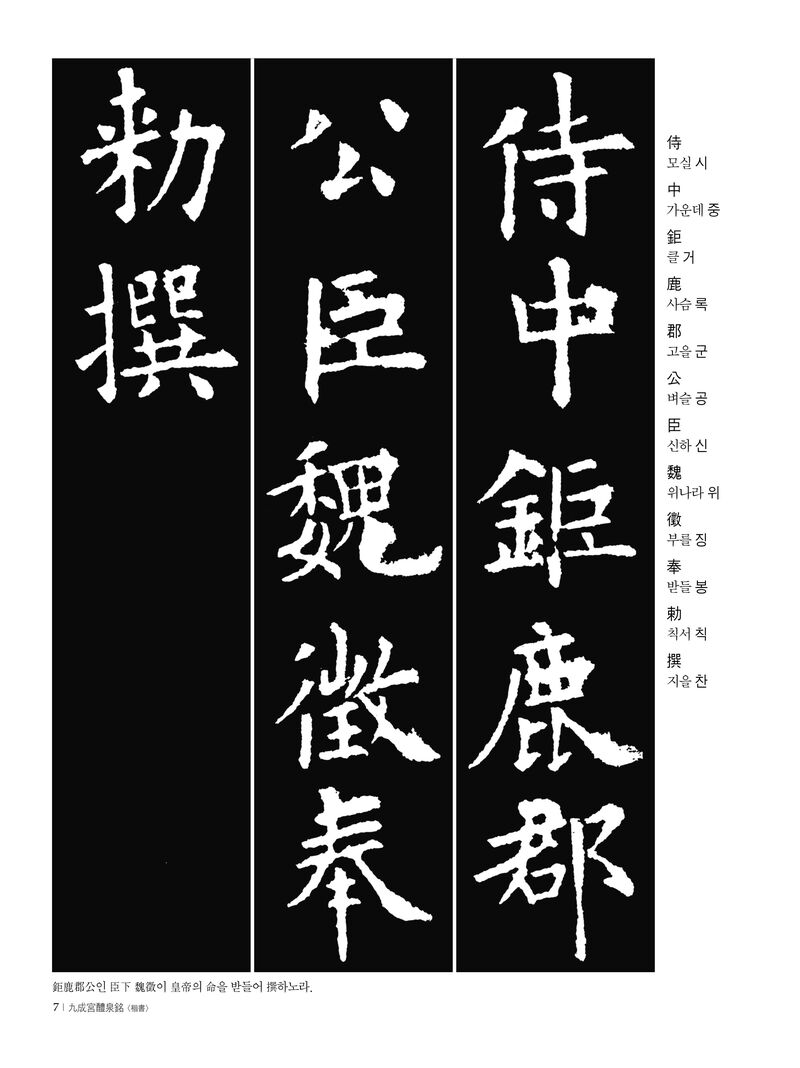 侍中鉅鹿郡
公臣魏徵奉
勑撰
侍
모실 시
中
가운데 중
鉅
클 거
鹿
사슴 록
郡
고을 군
公
벼슬 공
臣
신하 신
魏
위나라 위
徵
부를 징
奉
받들 봉
勅
칙서 칙
撰
지을 찬
鉅鹿郡公인 臣下 魏徵이 皇帝의 命을 받들어 撰하노라.
7 | 九成宮醴泉銘〈楷書〉